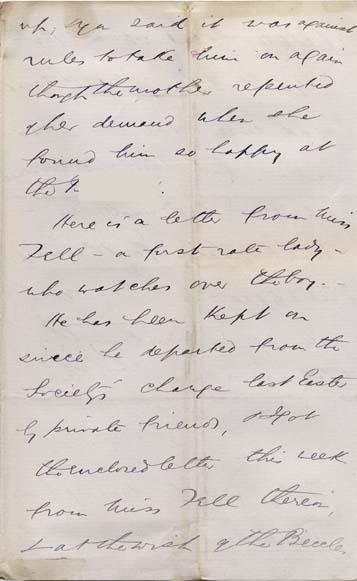 up; you said it was against
rules to take him on again
though the mother repented
of her demand when she
found him so happy at
the B
Here is a letter from Miss
Fell - a first rate lady -
who watches over the boy. -
He has been kept on
since he departed from the
Society's charge last Easter
by private friends, & I got
the enclosed letter this week
from Miss Fell therein,
& at the wish of the Beccles